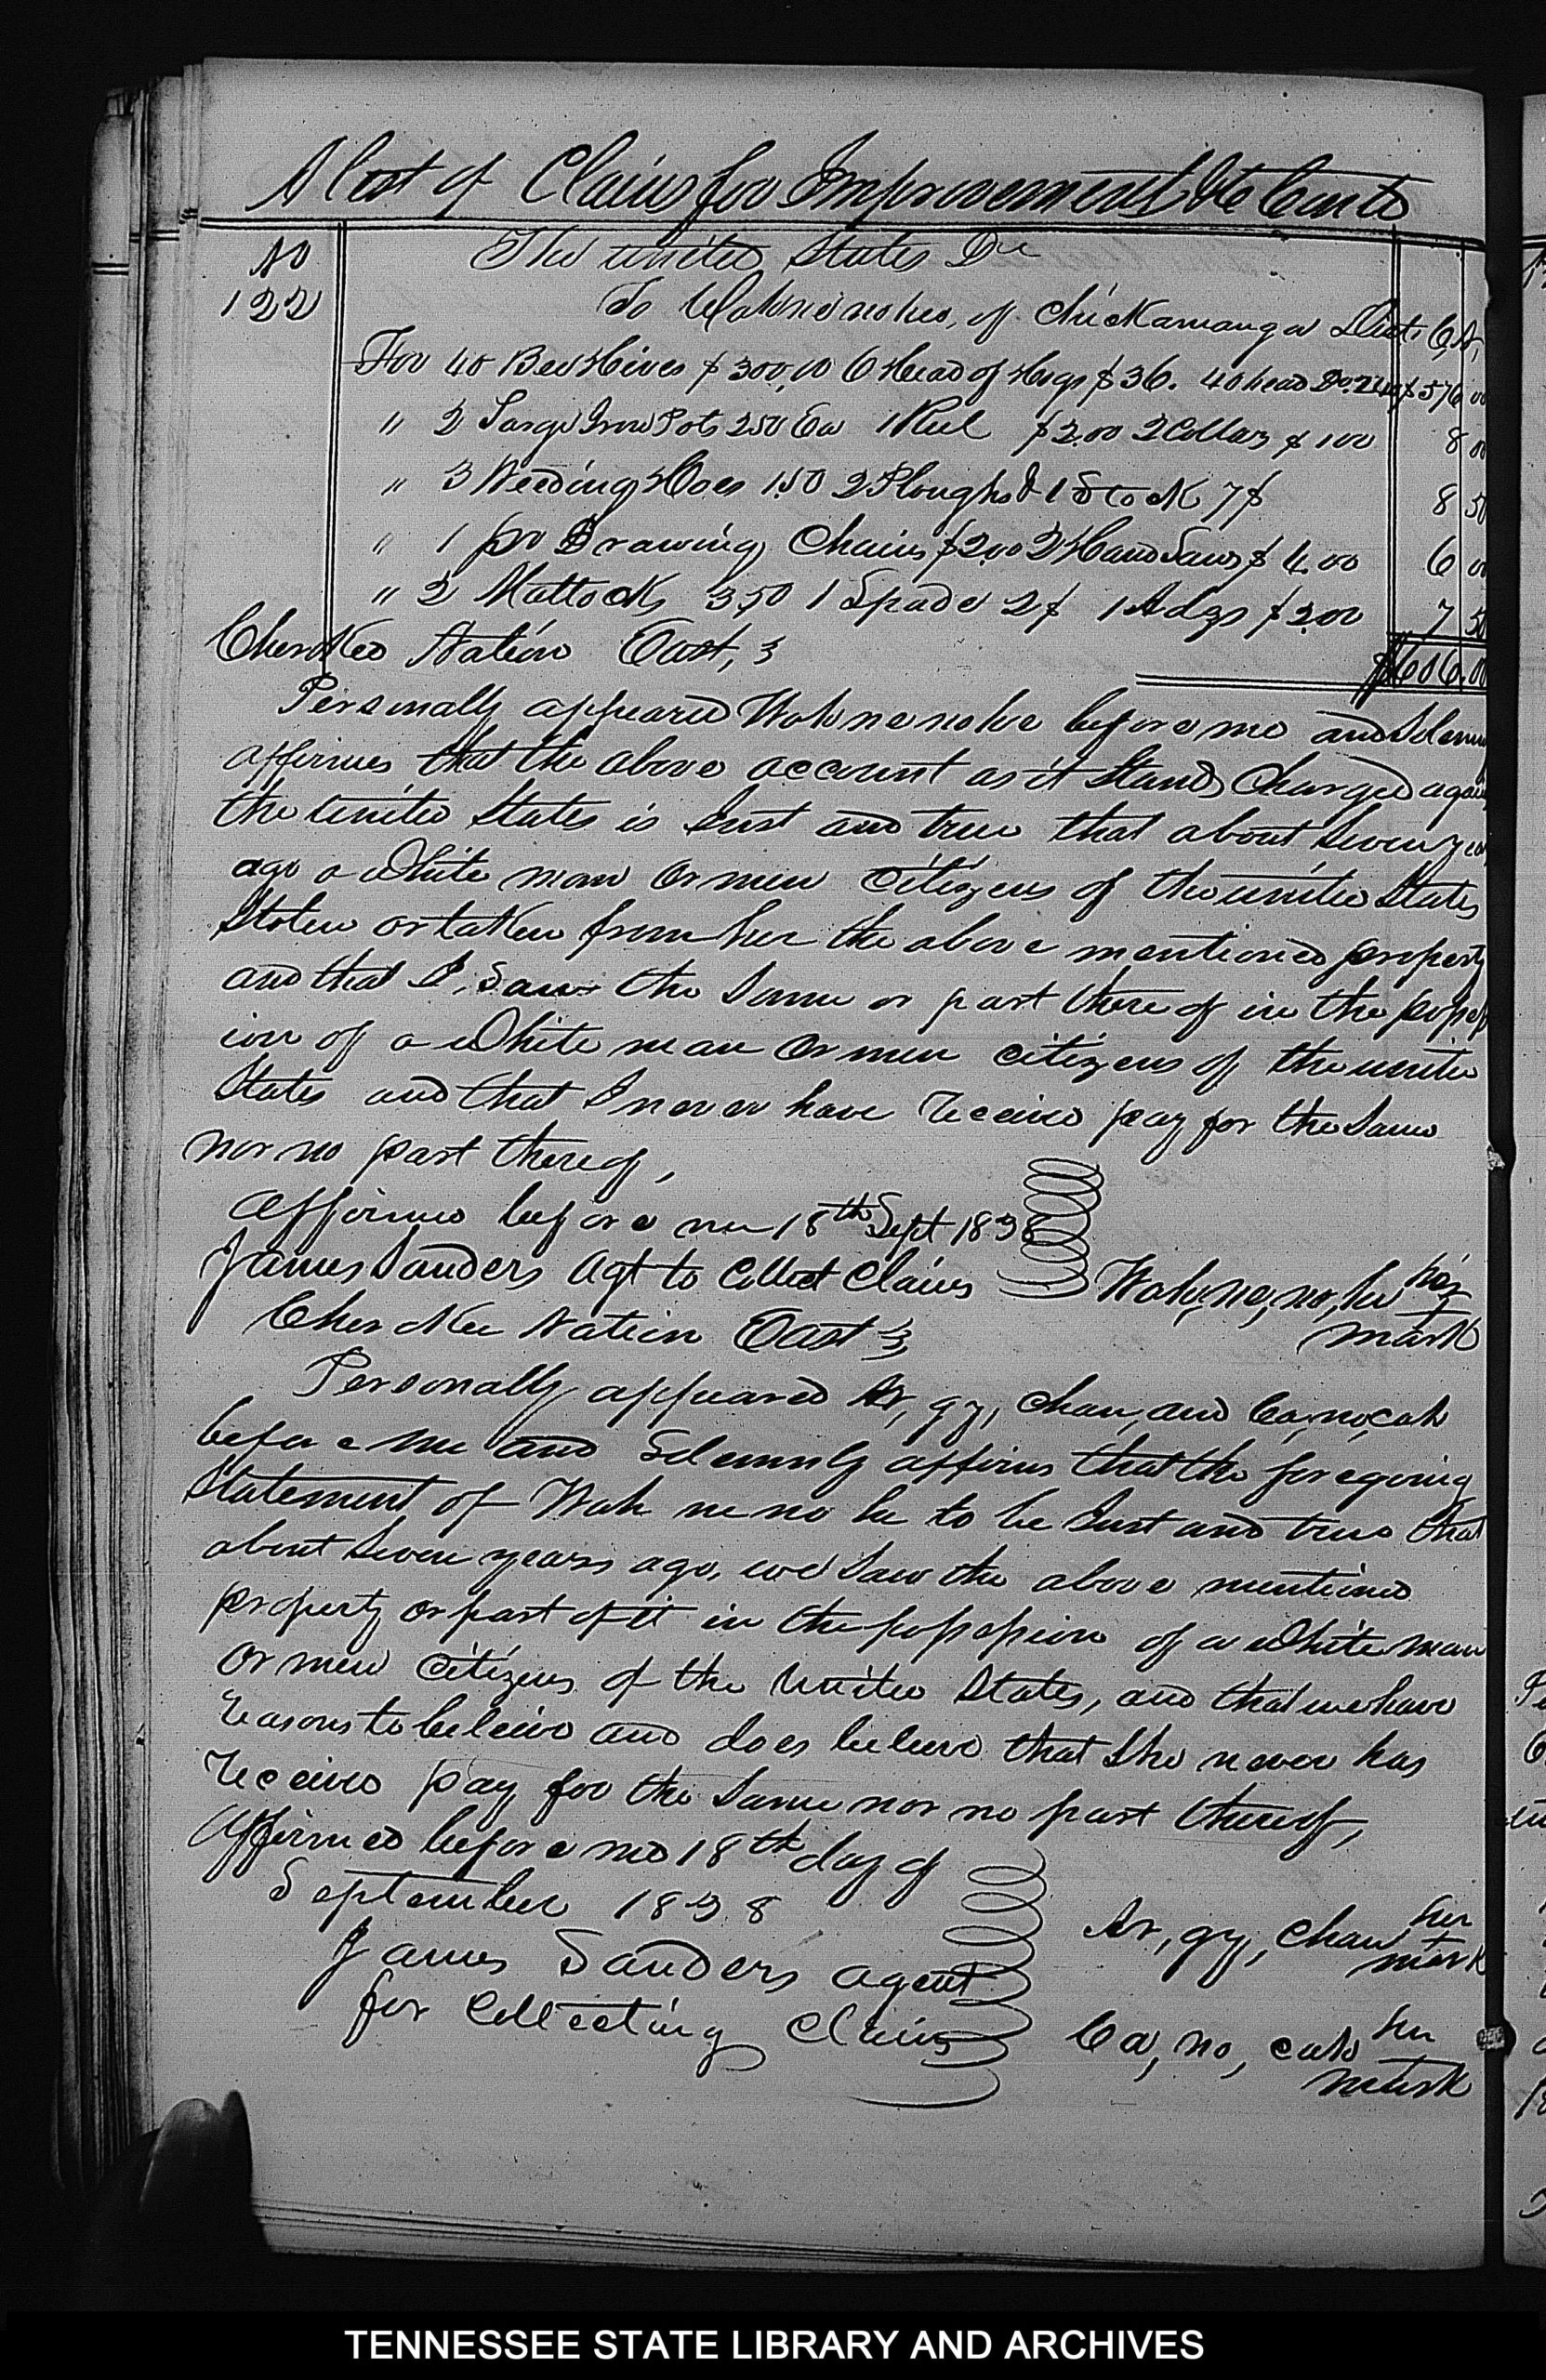 A list of Claims for Improvements &c Cont'd
No The United States Dr
122 To Wahnenohee, of Chickamauga Dist. C,N,
For 40 Bee Hives $300,00 6 Head of Hogs $36. 40 head Do. 240$ 576 00
" 2 Large Iron Pots 250 Ea 1 Reel $2.00 2 Collars $100 8 00
" 3 Weeding Hoes 150 2 Ploughs & 1 Stock 7$ 8 50
" 1 pr Drawing Chains $200 2 Hand Saws $4.00 6 00
" 2 Mattocks 350 1 Spade 2$ 1 Adzs $200 7 50
Cherokee Nation East, 3 $606.00
Personally appeared Wahnenohee before me and Solemn
affirmes that the above account as it Stands Charged again
the united States is Just and true that about Seven yea
ago a White man or men Citizens of the united States
Stolen or taken from her the above mentioned property
and that I, Saw the Same or part there of in the possess
ion of a White man or men citizens of the unite
States and that I never have received pay for the Same
nor no part thereof,
Affirmed before me 18th Sept 1838
James Sanders Agt to Collect Claims Wah,ne,no,hee her x
Cherokee Nation East 3 mark
Personally appeared Ar, gy, chau, and Ca,no,cah
before me and Solemnly affirms that the foregoing
Statement of Wah ne no he to be Just and true that
about Seven years ago, we Saw the above mentioned
property or part of it in the possession of a White man
or men Citizens of the United States, and that we have
reasons to beleive and does beleeve that She never has
received pay for the Same nor no part thereof,
Affirmed before me 18th day of
September 1838
Ar, gy, Chau her + mark
James Sanders agent
for Collecting Claims
Ca, no, cah her
mark
TENNESSEE STATE LIBRARY AND ARCHIVES